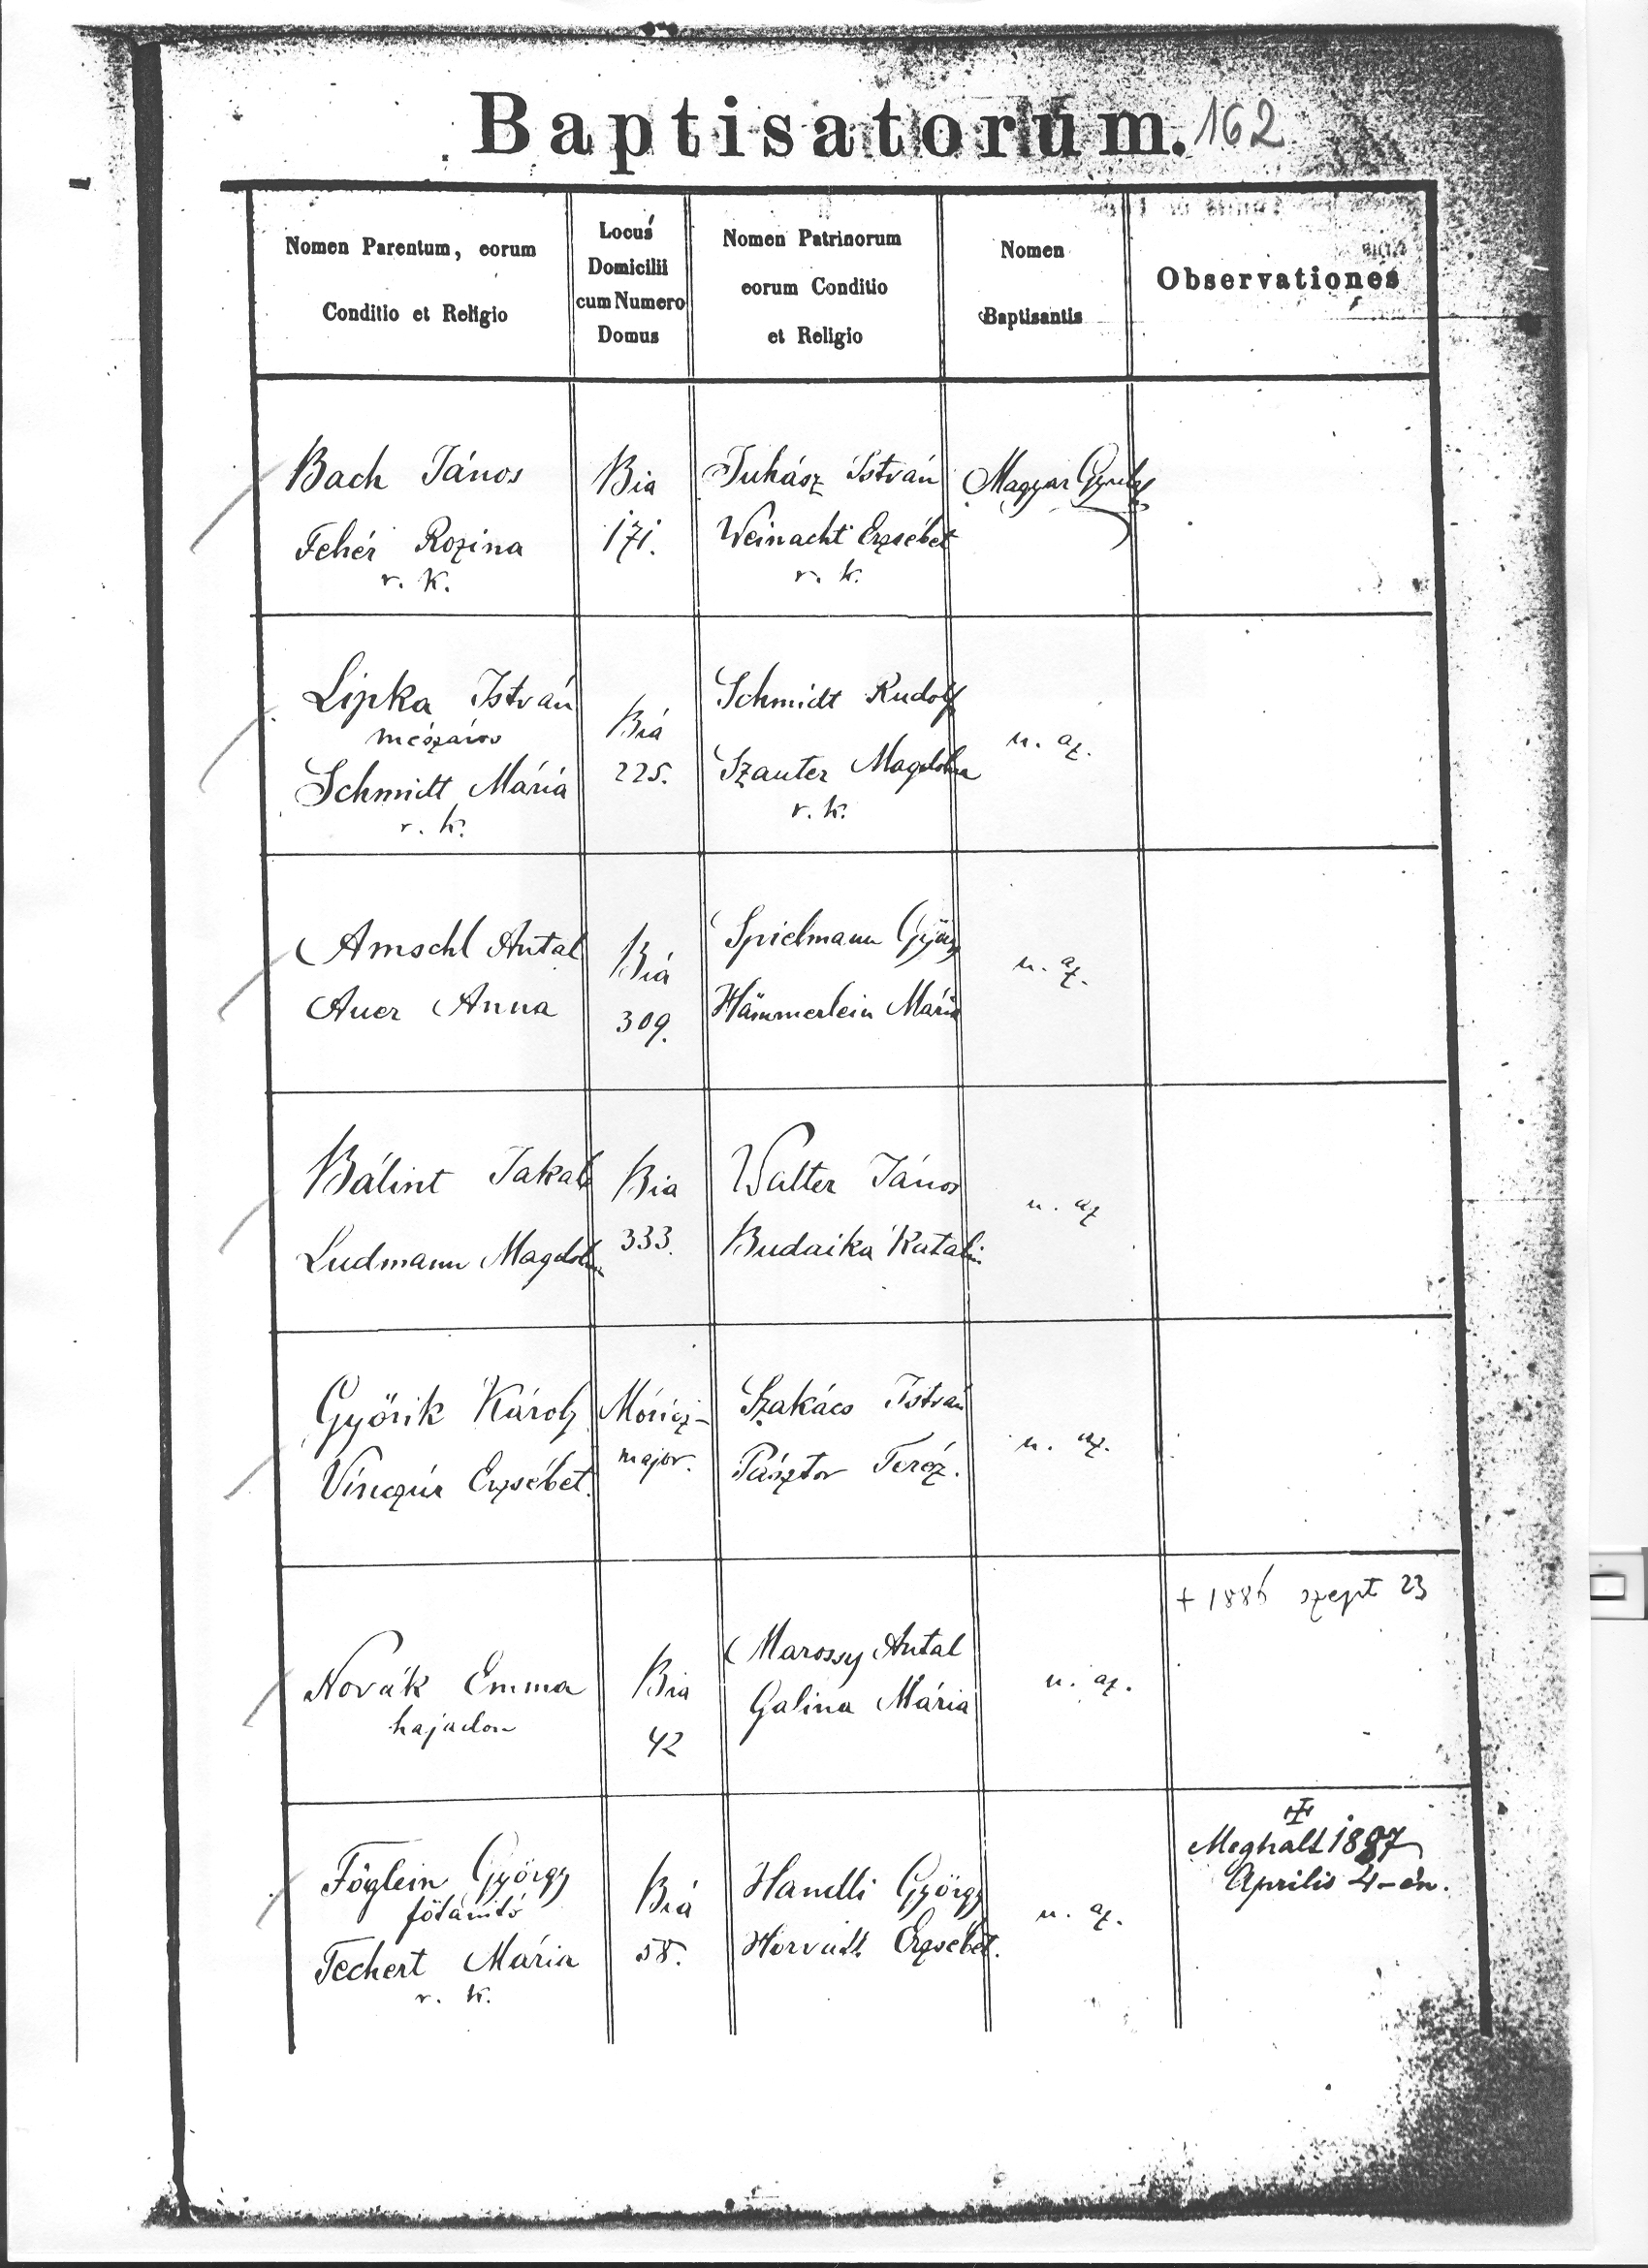 Baptisatorum. 162
Nomen Parentum, eorum
Conditio et Religio
Locus
Domicilii
cum Numero
Domus
Nomen Patrinorum
eorum Conditio
et Religio
Nomen
Baptisantis
Observationes
Bach János
Fehér Rozina
r. k.
Bia
171.
Juhász István
Weinacht Erzsébet
r. k.
Magyar Gyula
Lipka István
mészáros
Schmidt Mária
r. k.
Bia
225.
Schmidt Rudolf
Szauter Magdolna
r. k.
u. az.
Amschl Antal
Auer Anna
Bia
309.
Spielmann György
Hämmerlein Mária
u. az.
Bálint Jakab
Ludmann Magdolna
Bia
333.
Walter János
Budaika Katalin
u. az
Györik Károly
Vinczúr Erzsébet.
Móricz-
major.
Szakács István
Pásztor Teréz.
u. az.
Novák Emma
hajadon
Bia
42
Marossy Antal
Galina Mária
u. az.
+ 1886 szept 23
Föglein György
főtanító
Techert Mária
r. k.
Bia
58.
Handli György
Horváth Erzsébet.
u. az.
Meghalt 1887
Április 4-én.